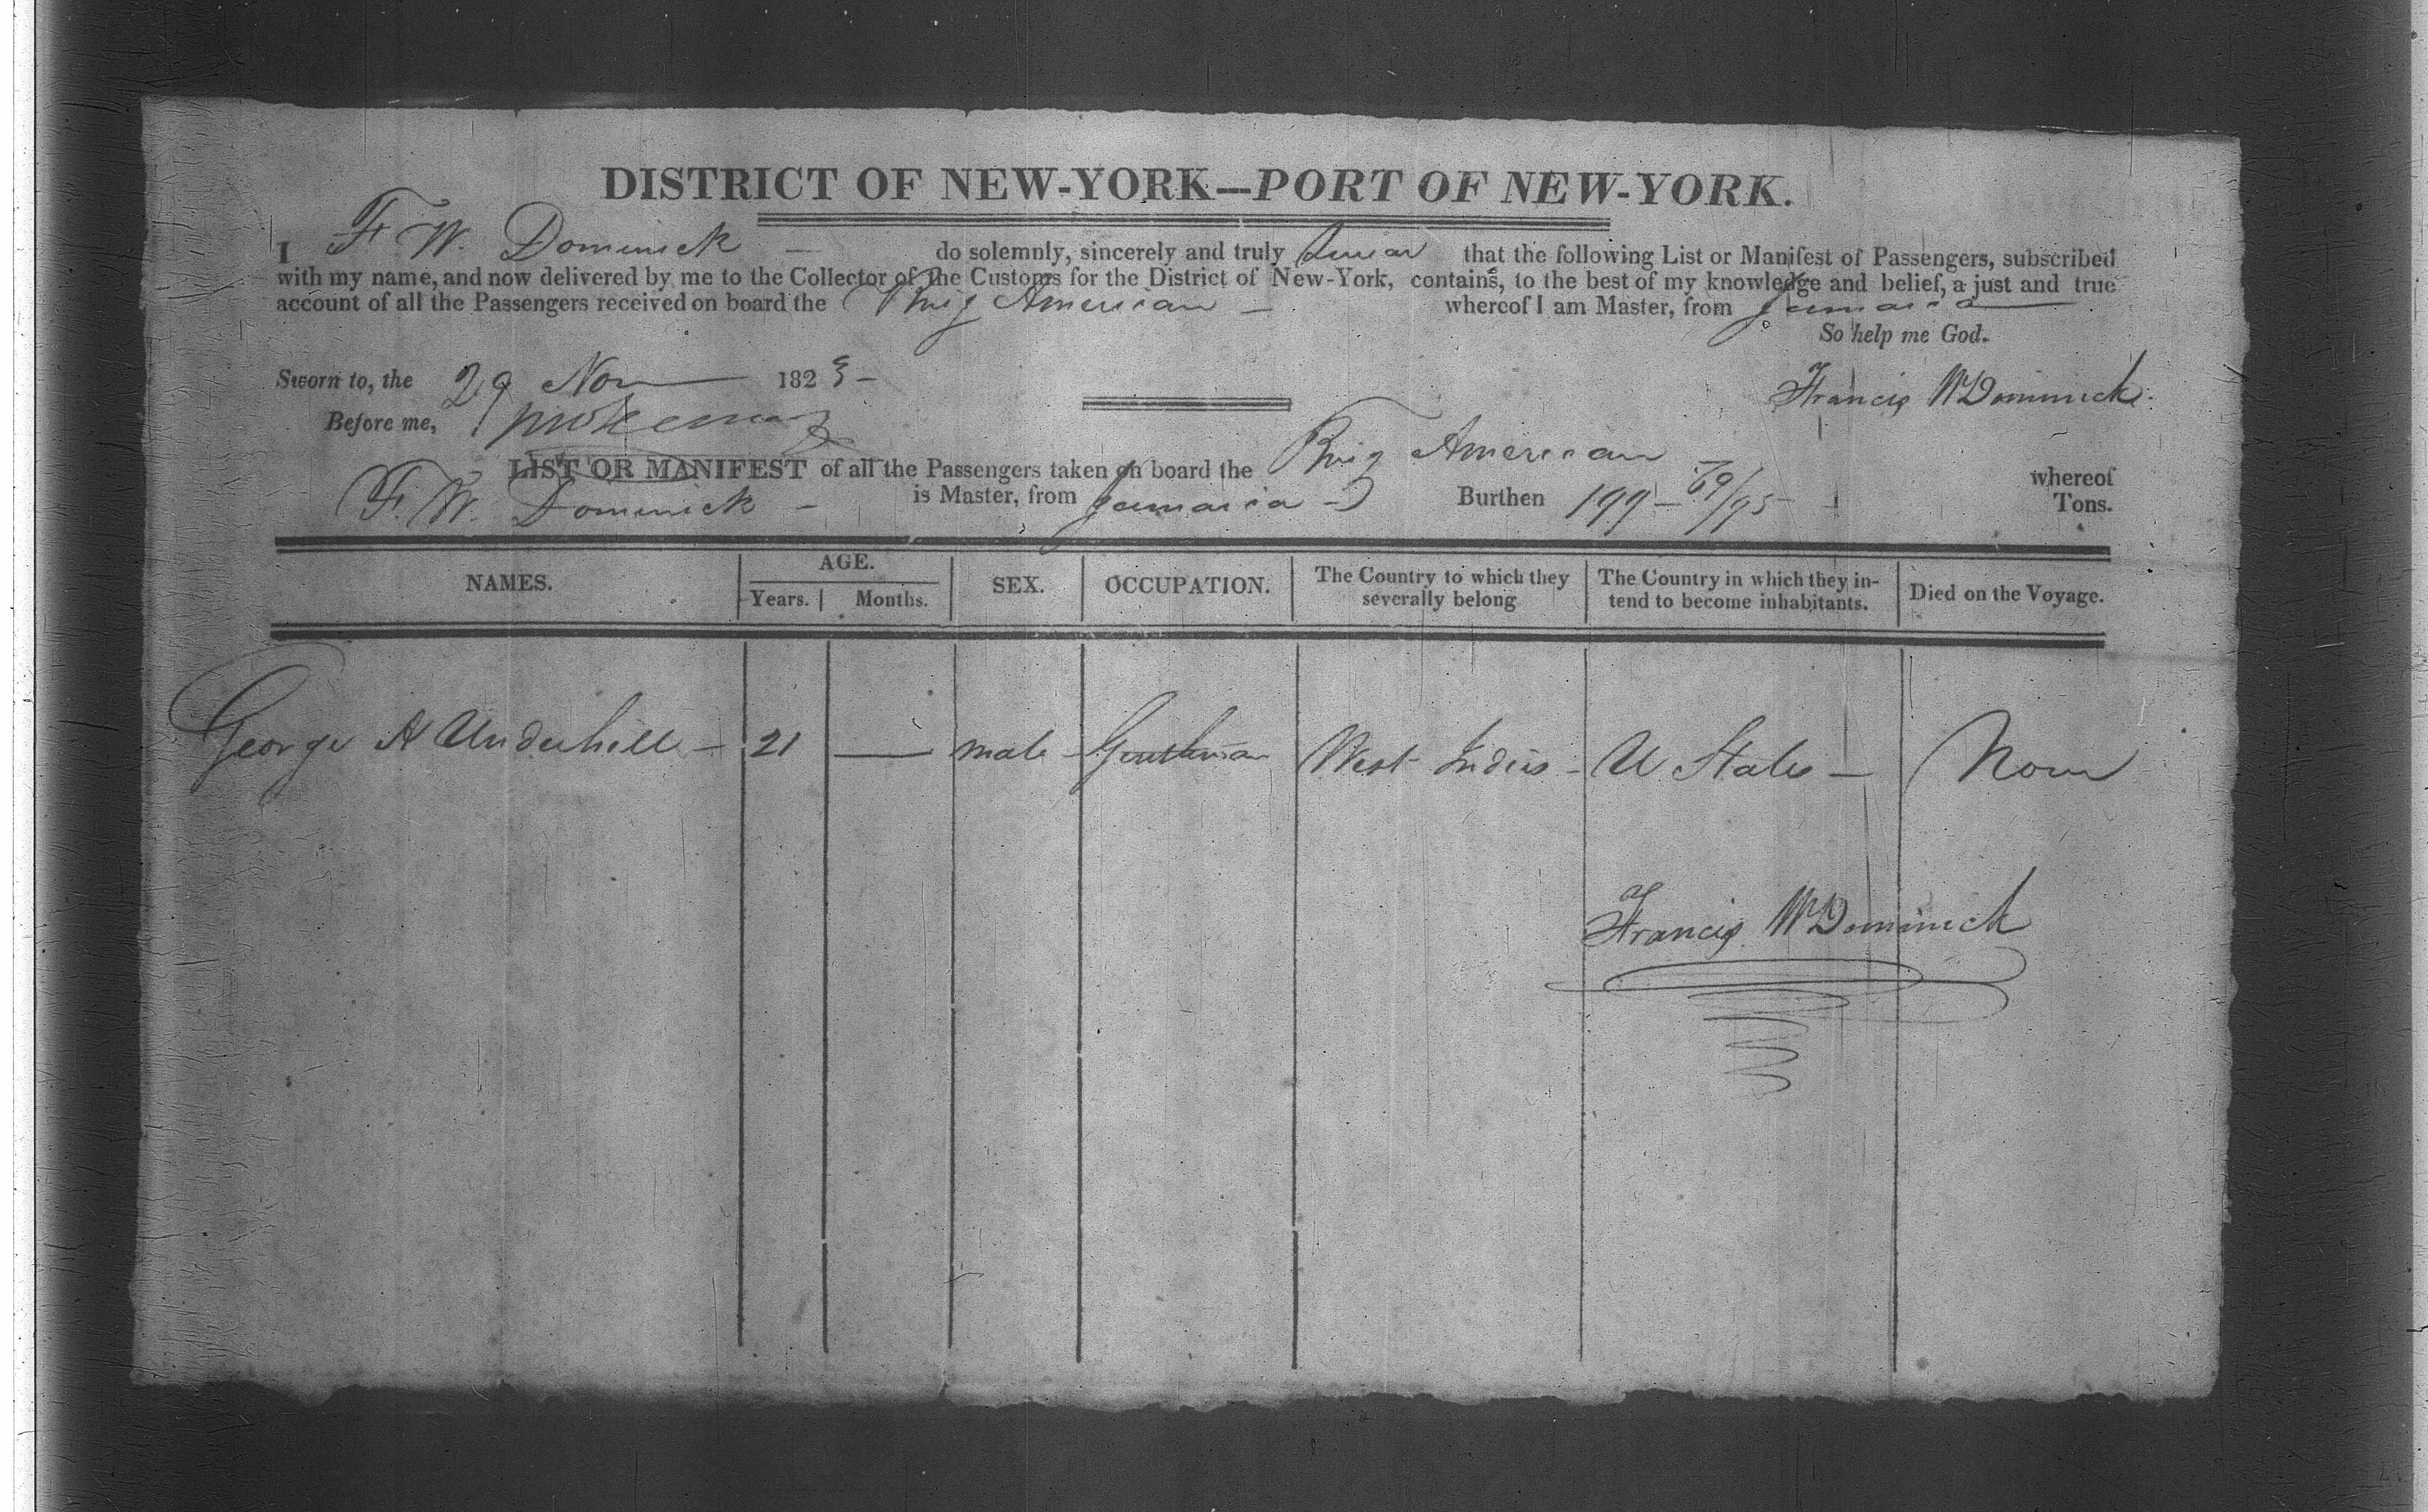 DISTRICT OF NEW-YORK—PORT OF NEW-YORK.
I F. W. Dominick – do solemnly, sincerely and truly swear that the following List or Manifest of Passengers, subscribed
with my name, and now delivered by me to the Collector of the Customs for the District of New-York, contains, to the best of my knowledge and belief, a just and true
account of all the Passengers received on board the Brig American – whereof I am Master, from Jamaica
So help me God.
Sworn to, the 29 Nov 1823 –
Francis W Dominick
Before me,
LIST OR MANIFEST of all the Passengers taken on board the Brig American whereof
F. W. Dominick – is Master, from Jamaica – Burthen 199 – 69/95 – Tons.
NAMES. AGE. Years. Months. SEX. OCCUPATION. The Country to which they severally belong The Country in which they intend to become inhabitants. Died on the Voyage.
George A Underhill – 21 — male – Gentleman West Indies – U States – None
Francis W Dominick